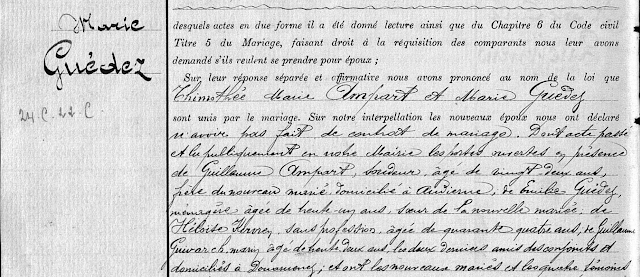 Marie
Guédez
24.C. 22 C.
desquels actes en due forme il a été donné lecture ainsi que du Chapitre 6 du Code civil
Titre 5 du Mariage, faisant droit à la réquisition des comparants nous leur avons
demandé s'ils veulent se prendre pour époux ;
Sur leur réponse séparée et affirmative nous avons prononcé au nom de la loi que
Thimothée Marie Ampart et Marie Guédez
sont unis par le mariage. Sur notre interpellation les nouveaux époux nous ont déclaré
n'avoir pas fait de contrat de mariage. Dont acte passé
et lu publiquement en notre Mairie les portes ouvertes en présence
de Guillaume Ampart, soudeur, âgé de vingt deux ans,
frère du nouveau marié domicilié à Audierne, de Guédez,
ménagère âgée de trente un ans, sœur de la nouvelle mariée, de
Héloïse sans profession, âgée de quarante quatre ans, de Guillaume
Guivarch, marin âgé de trente deux ans, les deux derniers amis des conjoints et
domiciliés à Douarnenez ; et ont les nouveaux mariés et les quatre témoins